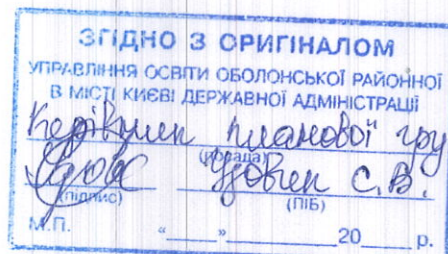 ЗГІДНО З ОРИГІНАЛОМ
УПРАВЛІННЯ ОСВІТИ ОБОЛОНСЬКОЇ РАЙОННОЇ
В МІСТІ КИЄВІ ДЕРЖАВНОЇ АДМІНІСТРАЦІЇ
Керівник планової гру
(посада)
С.В.
(підпис) (ПІБ)
М.П. "___" ______ 20___ р.